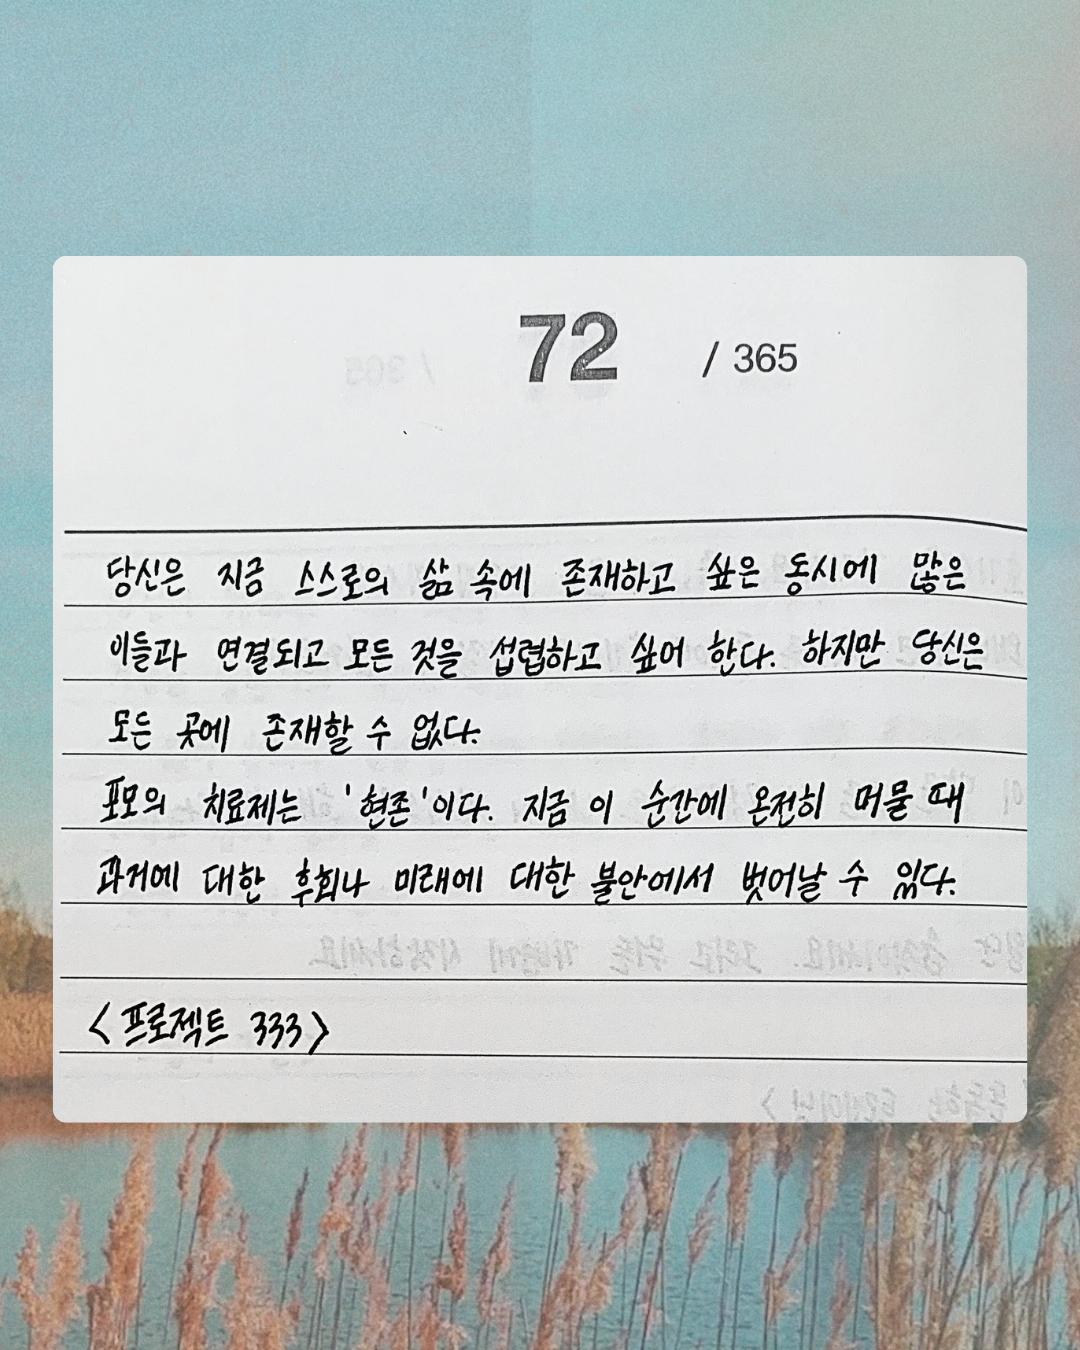 72 / 365
당신은 지금 스스로의 삶 속에 존재하고 싶은 동시에 많은
이들과 연결되고 모든 것을 섭렵하고 싶어 한다. 하지만 당신은
모든 곳에 존재할 수 없다.
포모의 치료제는 '현존'이다. 지금 이 순간에 온전히 머물 때
과거에 대한 후회나 미래에 대한 불안에서 벗어날 수 있다.
<프로젝트 333>